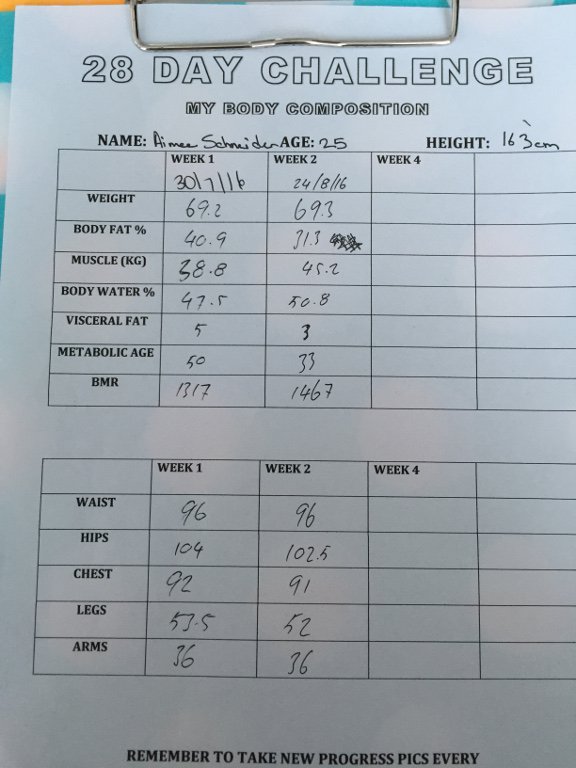 28 DAY CHALLENGE
MY BODY COMPOSITION
NAME: Aimee Schneider AGE: 25 HEIGHT: 163cm
WEEK 1 WEEK 2 WEEK 4
30/7/16 24/8/16
WEIGHT 69.2 69.3
BODY FAT % 40.9 31.3
MUSCLE (KG) 38.8 45.2
BODY WATER % 47.5 50.8
VISCERAL FAT 5 3
METABOLIC AGE 50 33
BMR 1317 1467
WEEK 1 WEEK 2 WEEK 4
WAIST 96 96
HIPS 104 102.5
CHEST 92 91
LEGS 53.5 52
ARMS 36 36
REMEMBER TO TAKE NEW PROGRESS PICS EVERY